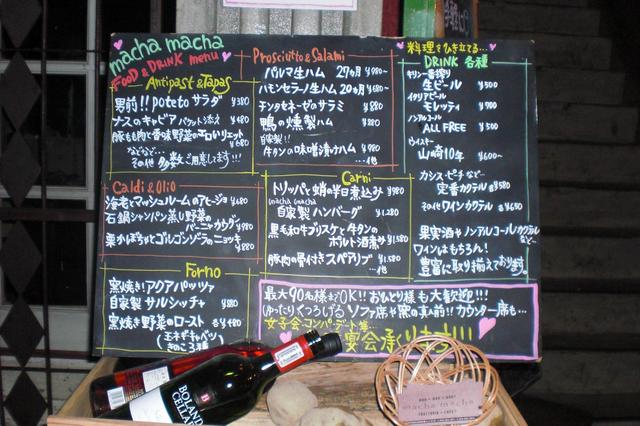 macha macha
FOOD & DRINK menu
Antipast & Tapas
男前!! poteto サラダ ¥380
ナスのキャビア バケット添え ¥480
豚もも肉と香味野菜のエロいリエット ¥680
などなど…
その他 多数ご用意してます!!!
Caldi & Olio
海老とマッシュルームのアヒージョ ¥680
石鍋シャンパン蒸し野菜の
バーニャカウダ ¥980
栗かぼちゃとゴルゴンゾーラのニョッキ ¥880
Forno
窯焼き!アクアパッツァ
自家製 サルシッチャ ¥880
窯焼き野菜のロースト 各¥480
(玉ネギ キャベツ
きのこ3種)
Prosciutto & Salami
パルマ生ハム 27ヵ月 ¥980~
ハモンセラーノ生ハム 20ヵ月 ¥680~
チンタセネーゼのサラミ ¥880
鴨の燻製ハム ¥880
自家製!!
牛タンの味噌漬けハム ¥880
…他
Carni
トリッパと蛸の半日煮込み ¥980
macha macha
自家製ハンバーグ ¥1,280
黒毛和牛ブリスケと牛タンの
ポルト酒煮 ¥1,580
豚肉の骨付きスペアリブ ¥1,580
…他
料理をひき立てる…
DRINK 各種
キリン一番搾り
生ビール ¥500
イタリアビール
モレッティ ¥700
ノンアルコール
ALL FREE ¥500
ウイスキー
山崎10年 ¥600~
カシス・ピーチなど…
定番カクテル 各¥580
その他ワインカクテル ¥650
果実酒やノンアルコールカクテル
など…
ワインはもちろん!
豊富に取り揃えております。
最大90名様までOK!! おひとり様も大歓迎!!!
ゆったりくつろげるソファ席や窯の真ん前!! カウンター席も…
女子会・コンパ・デート等…
宴会承ります!!!
BOLAND
CELLAR
macha macha